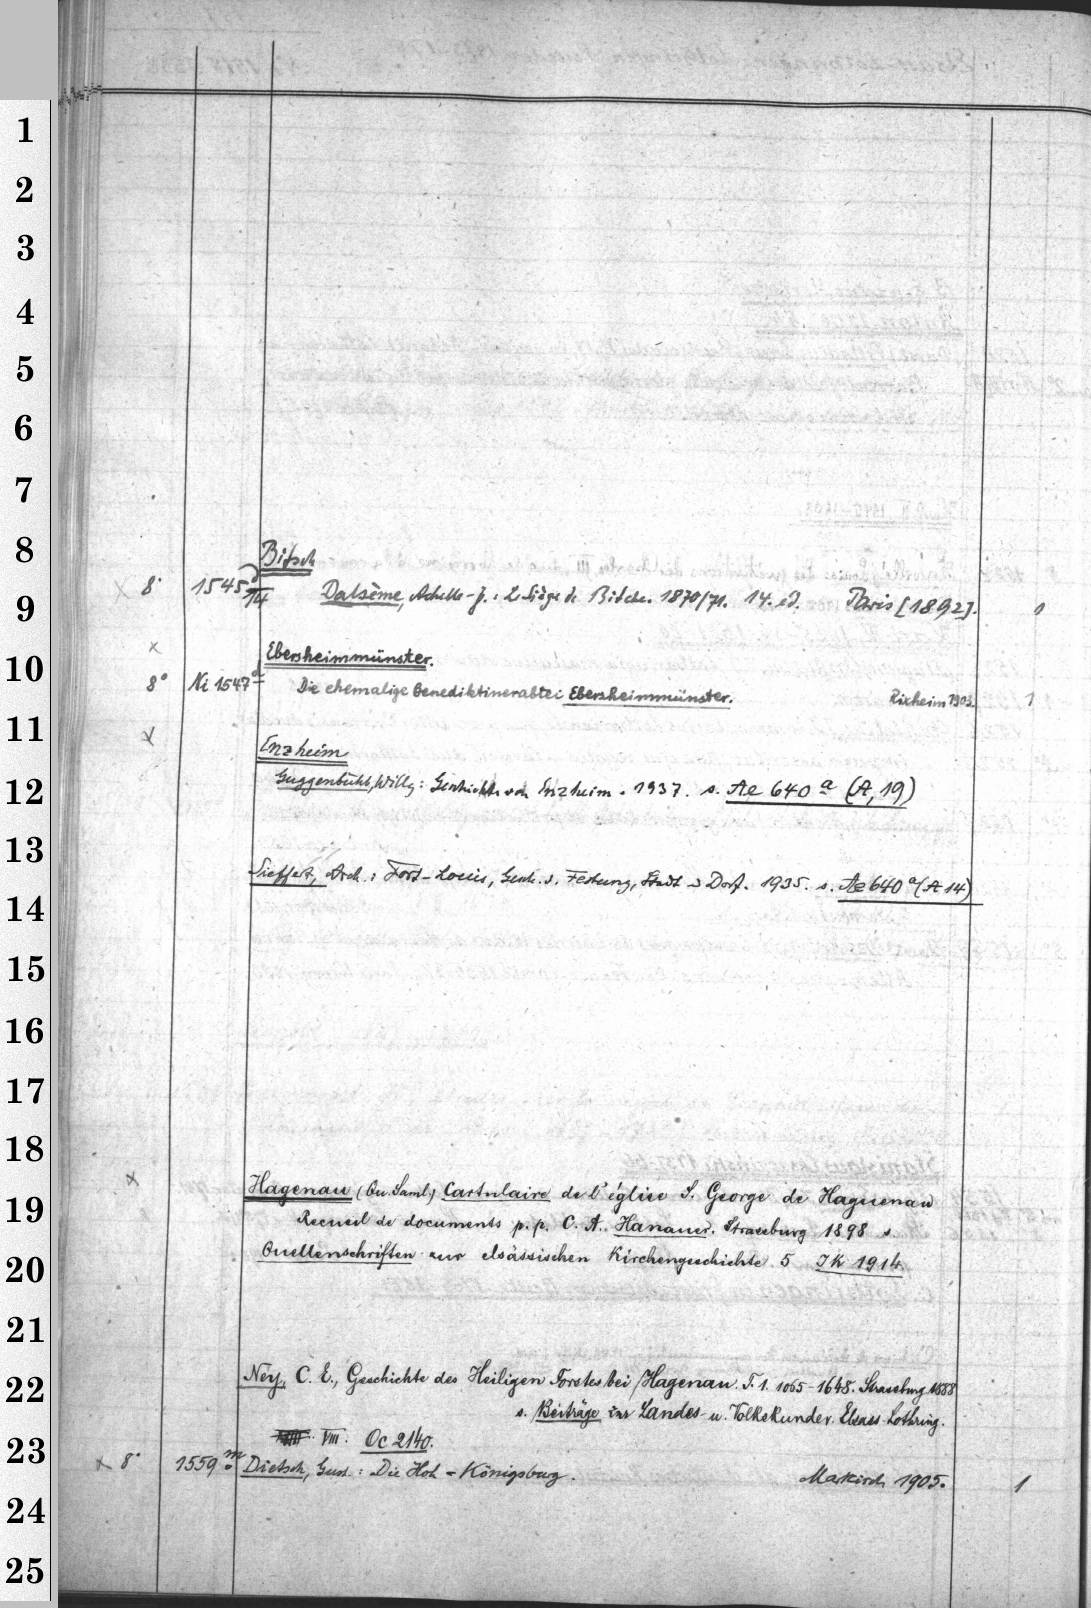 1
2
3
4
5
6
7
8
9
10
11
12
13
14
15
16
17
18
19
20
21
22
23
24
25
Bitsch
x 8° 1545 d/14 Dalsème, Achille-J.: Le Siège de Bitche. 1870/71. 14. éd. Paris [1892]. 1
x
Ebersheimmünster.
8° Ni 1547 a Die ehemalige Benediktinerabtei Ebersheimmünster. Rixheim 1903. 1
x
Enzheim
Guggenbühl, Willy: Geschichte von Enzheim. 1937. s. Ae 640 a (A, 19)
Sieffert, Arch.: Fort-Louis, Gesch. s. Festung, Stadt u Dorf. 1935. s. Ae 640 a (A 14)
x
Hagenau (Qu. Saml.) Cartulaire de l'église S. George de Haguenau
Recueil de documents p. p. C. A. Hanauer. Strassburg 1898 s
Quellenschriften zur elsässischen Kirchengeschichte 5 IK 1914.
Ney, C. E., Geschichte des Heiligen Forstes bei Hagenau. T. 1. 1065-1648. Strassburg 1888
s. Beiträge zur Landes- u. Volkskunde v. Elsass-Lothring.
VIII. Oc 2140.
x 8° 1559 m Dietsch, Gust.: Die Hoh-Königsburg. Markirch 1905. 1